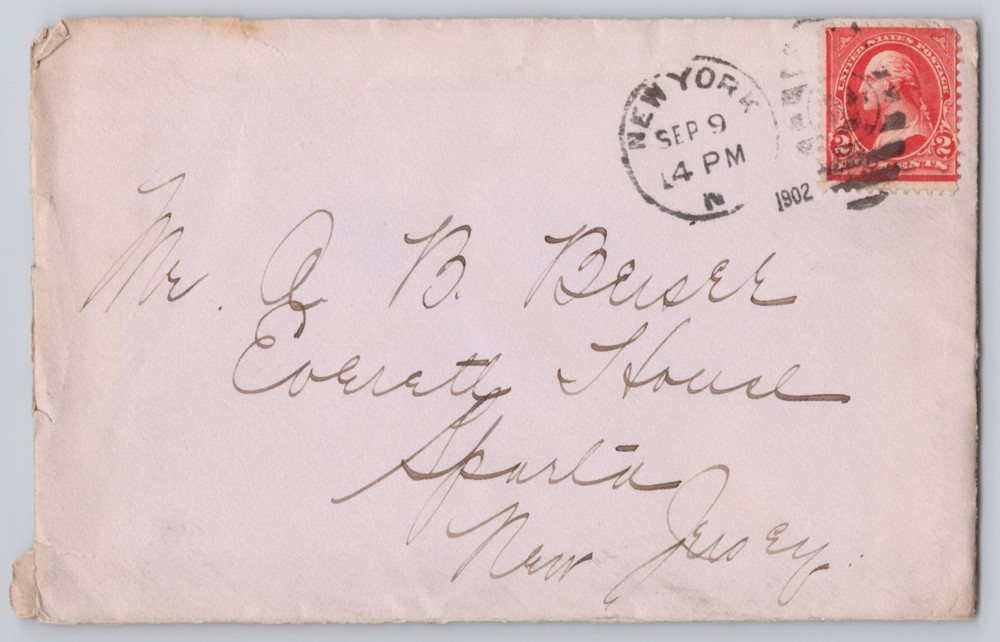 NEW YORK
SEP 9
4 PM
N
1902
UNITED STATES POSTAGE
2 2
CENTS
Mr. A. B. Beisel
Everett House
Sparta
New Jersey.